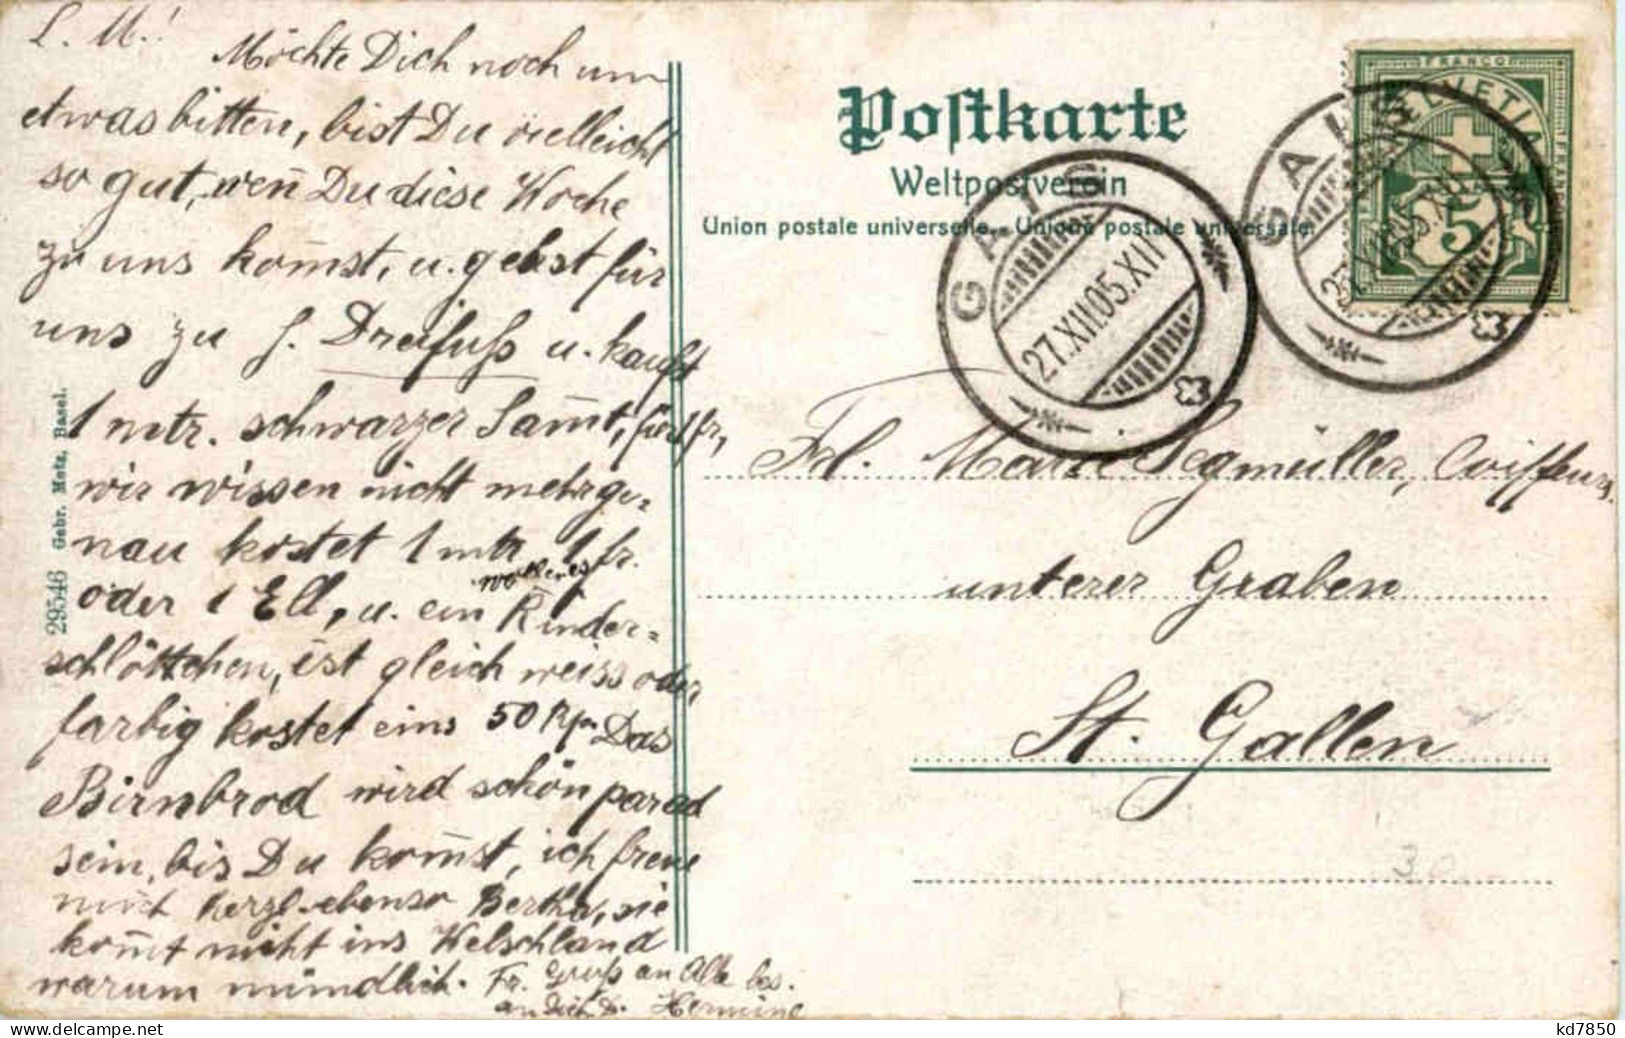 L. M.!
Möchte Dich noch um
etwas bitten, bist Du vielleicht
so gut, wen̄ Du diese Woche
zu uns kom̄st, u. gehst für
uns zu J. Dreifuß u. kaufst
1 mtr. schwarzer Sam̄t, für 1 fr,
wir wissen nicht mehr ge-
nau kostet 1 mtr. 1 fr.
oder 1 Ell, u. ein wollenes Kinder-
schlöttchen, ist gleich weiss oder
farbig kostet eins 50 Rp. Das
Birnbrod wird schön parad
sein, bis Du kom̄st, ich freue
mich herzl. ebenso Bertha, sie
kom̄t nicht ins Welschland
warum mündlich. Fr. Gruß an Alle bes.
an Dich D. Hermine
29546 Gebr. Metz, Basel.
Postkarte
Weltpostverein
Union postale universelle. - Unione postale universale.
GAIS
27.XII.05.XII
GAIS
FRANCO
HELVETIA
5
Frl. Marie Segmüller, Coiffeurs.
unterer Graben
St. Gallen
30
kd7850